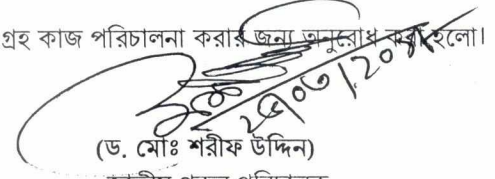 গ্রহ কাজ পরিচালনা করার জন্য অনুরোধ করা হলো।
(ড. মোঃ শরীফ উদ্দিন)